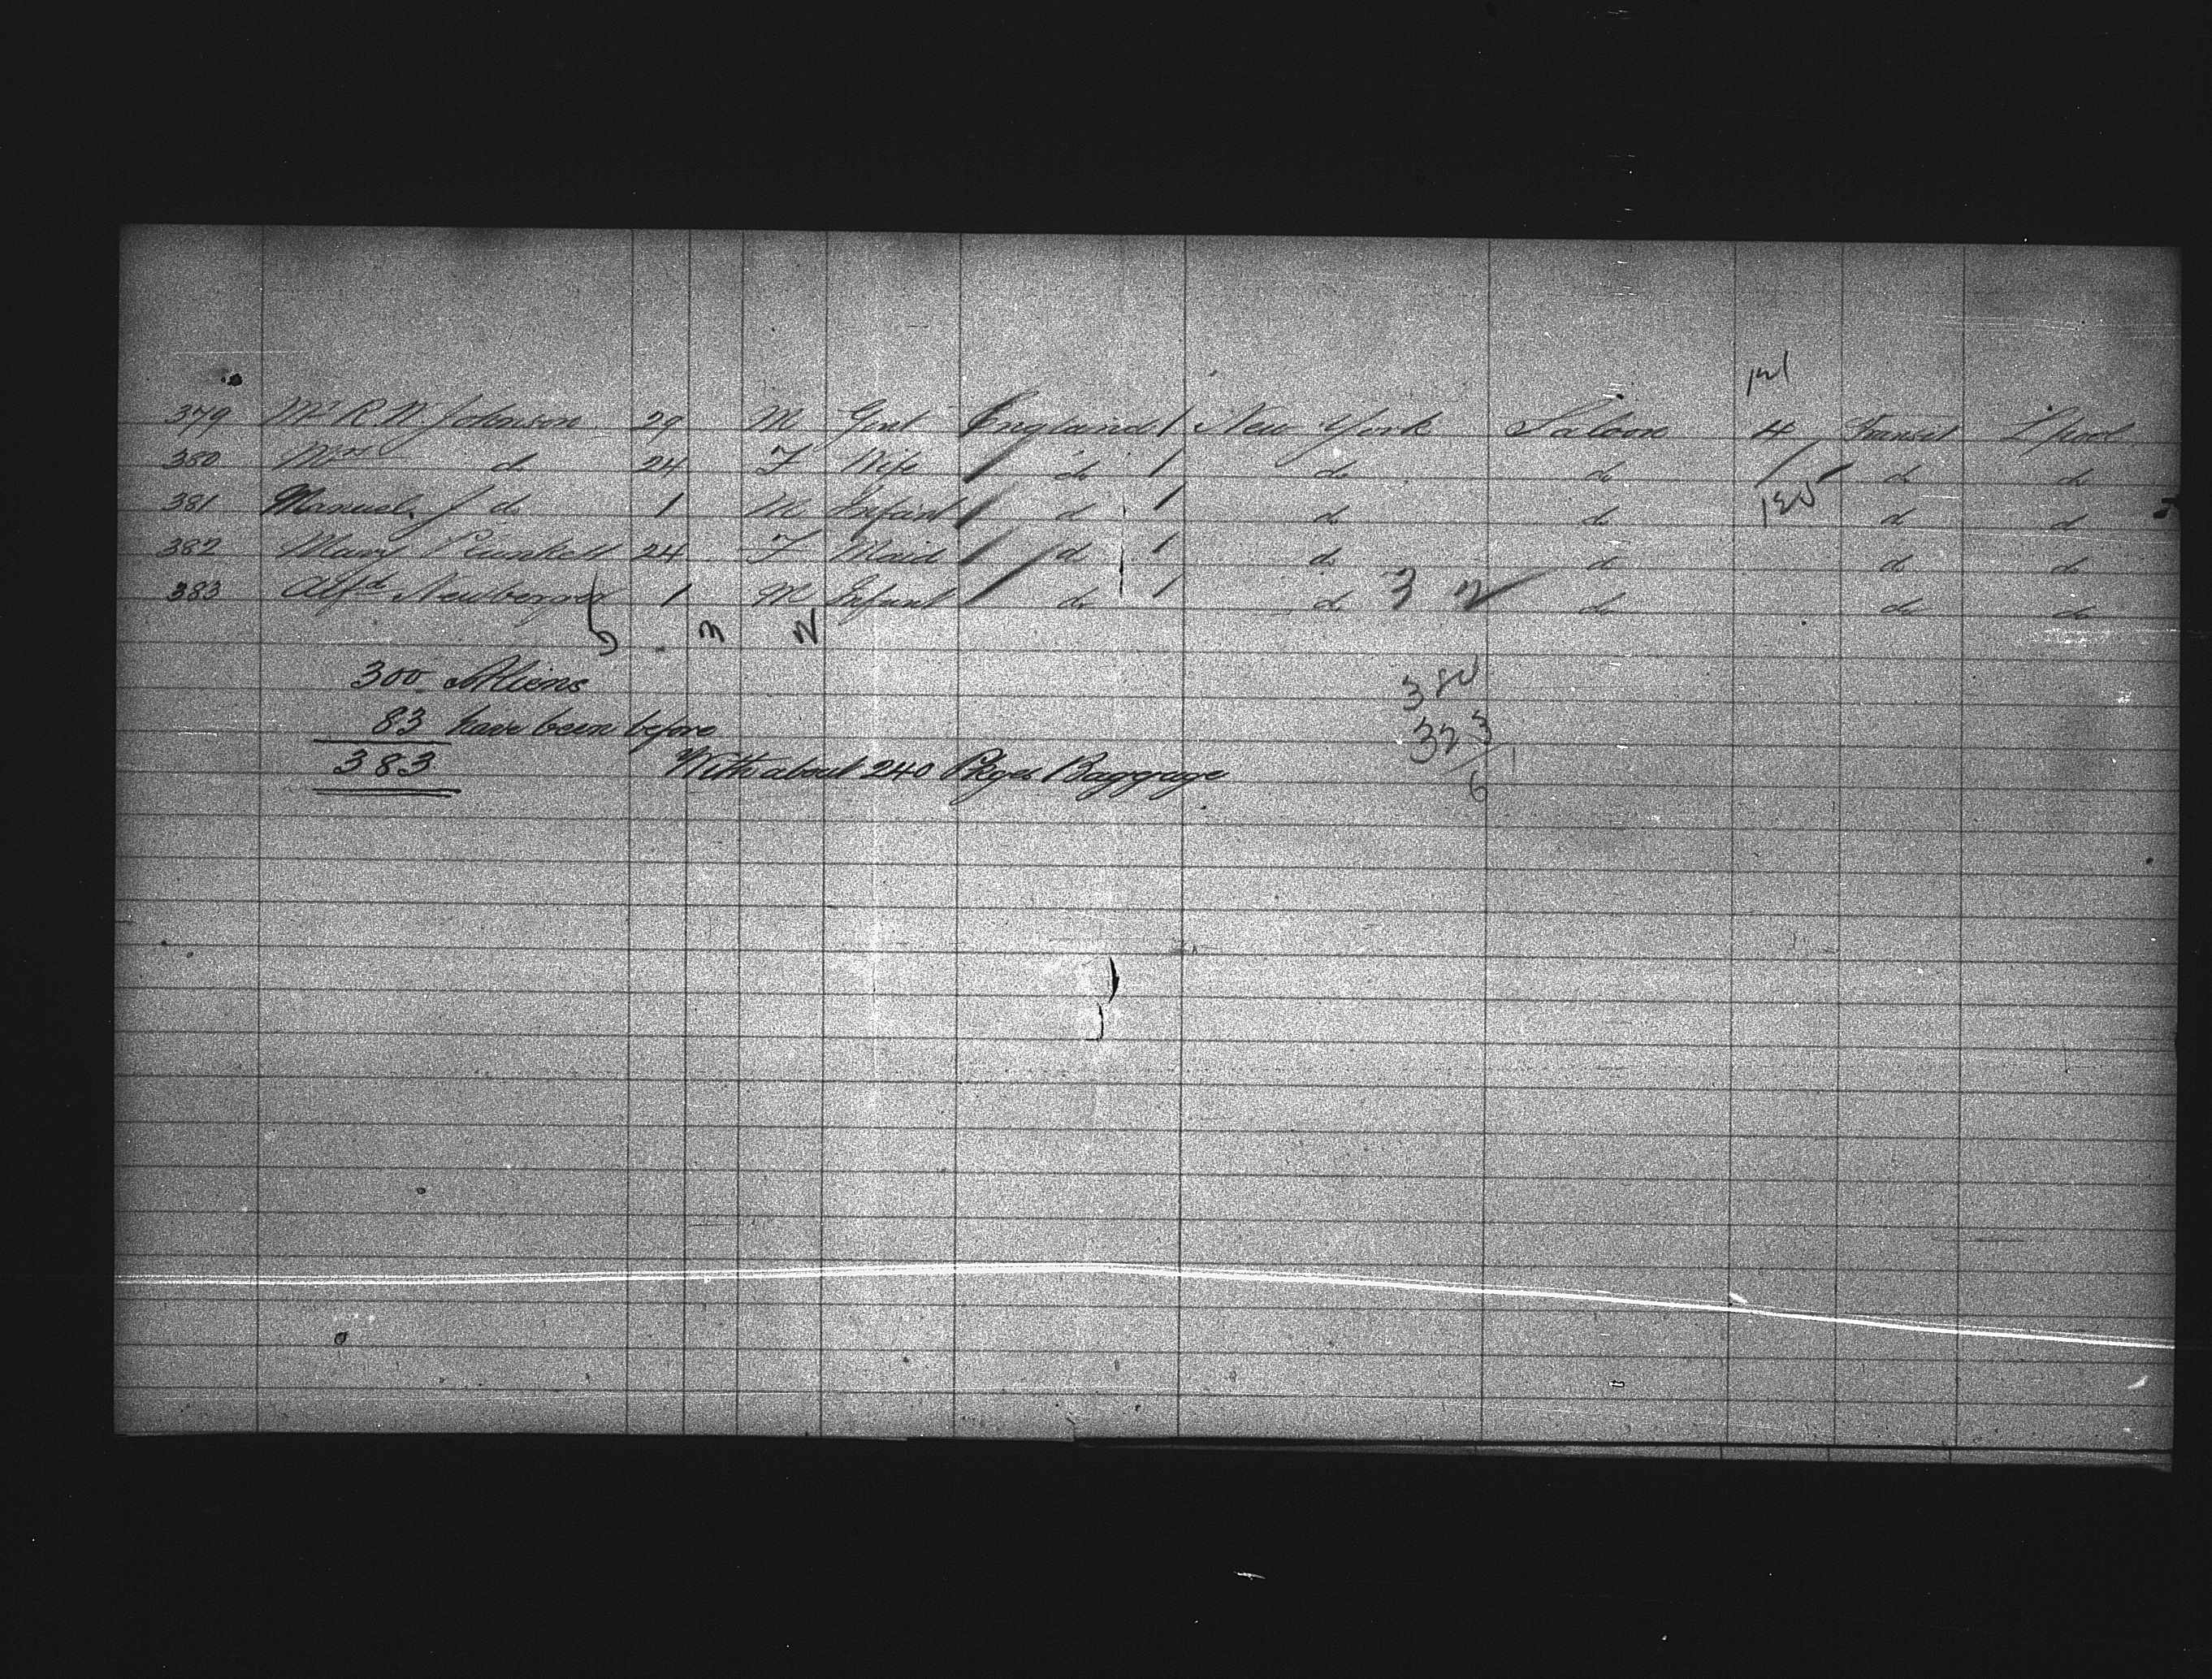 379 Mr R W Johnson 29 M Gent England 1 New York Saloon 4 Transit L'pool
380 Mrs do 24 F Wife do 1 do do do do
381 Manuel J do 1 M Infant do 1 do do do do
382 Mary 24 F Maid do 1 do do do do
383 Alfd Newberger 1 M Infant do 1 do do do do
5 3 2 3 2
300 Aliens
83 have been before
383 With about 240 Pkges Baggage
323
6